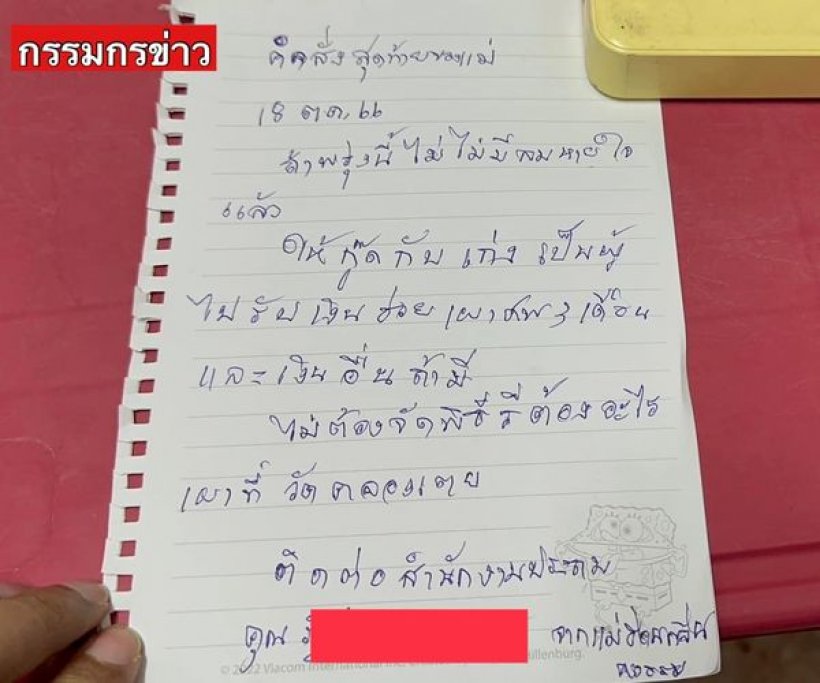 กรรมกรข่าว
คำสั่งสุดท้ายของแม่
18 ตค. 66
ถ้าพรุ่งนี้ แม่ไม่มีลมหายใจ
แล้ว
ให้ กู๊ด กับ เก่ง เป็นผู้
ไปรับเงินช่วยเผาศพ 3 เดือน
และเงินอื่นถ้ามี
ไม่ต้องจัดพิธีรีต้องอะไร
เผาที่ วัดคลองเตย
ติดต่อสำนักงานประถม
คุณ
จากแม่
© 2022 Viacom International Inc. ullenburg.